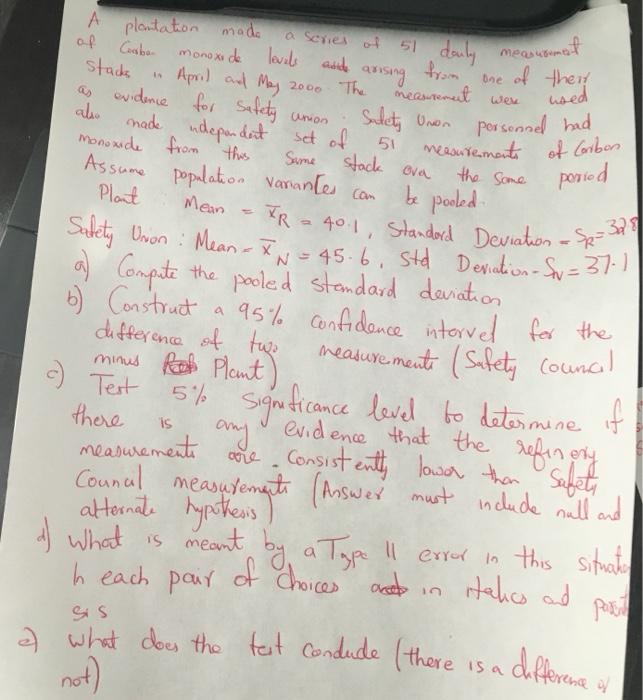 A plantation made a series of 51 daily measurement
of Carbon monoxide levels arising from one of their
stacks in April and May 2000. The measurement were used
as evidence for safety union. Safety Union personnel had
also made independent set of 51 measurements of Carbon
monoxide from this same stack over the same period
Assume population variances can be pooled.
Plant Mean = X̄R = 40.1, Standard Deviation = SR = 32.8
Safety Union : Mean = X̄N = 45.6, Std Deviation - SN = 37.1
a) Compute the pooled standard deviation
b) Construct a 95% confidence interval for the
difference of two measurements (Safety council
minus Plant)
c) Test 5% significance level to determine if
there is any evidence that the refinery
measurements are consistently lower than Safety
Council measurements (Answer must include null and
alternate hypothesis)
d) What is meant by a Type II error in this situation
In each pair of choices in italics and
sis
e) What does the test conclude (there is a difference or
not)